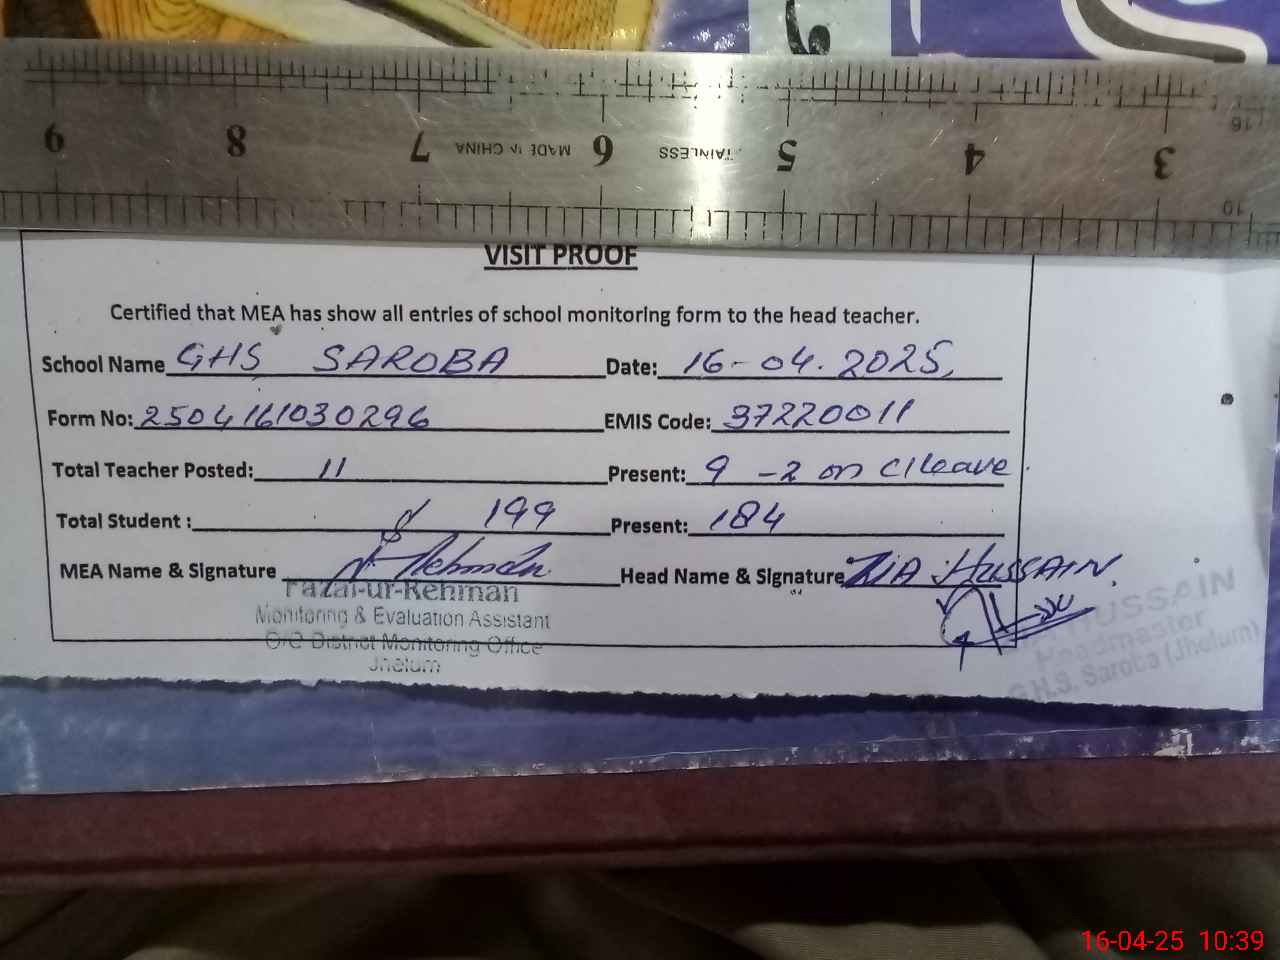 9 8 7 MADE IN CHINA 6 STAINLESS 5 4 3
16
10
VISIT PROOF
Certified that MEA has show all entries of school monitoring form to the head teacher.
School Name GHS SAROBA Date: 16-04.2025,
Form No: 2504161030296 EMIS Code: 37220011
Total Teacher Posted: 11 Present: 9 -2 on c/leave
Total Student : 199 Present: 184
MEA Name & Signature Rehman Head Name & Signature ZIA HUSSAIN.
Fazal-ur-Rehman
Monitoring & Evaluation Assistant
O/O District Monitoring Office
Jhelum
HUSSAIN
Headmaster
G.H.S. Saroba (Jhelum)
16-04-25 10:39